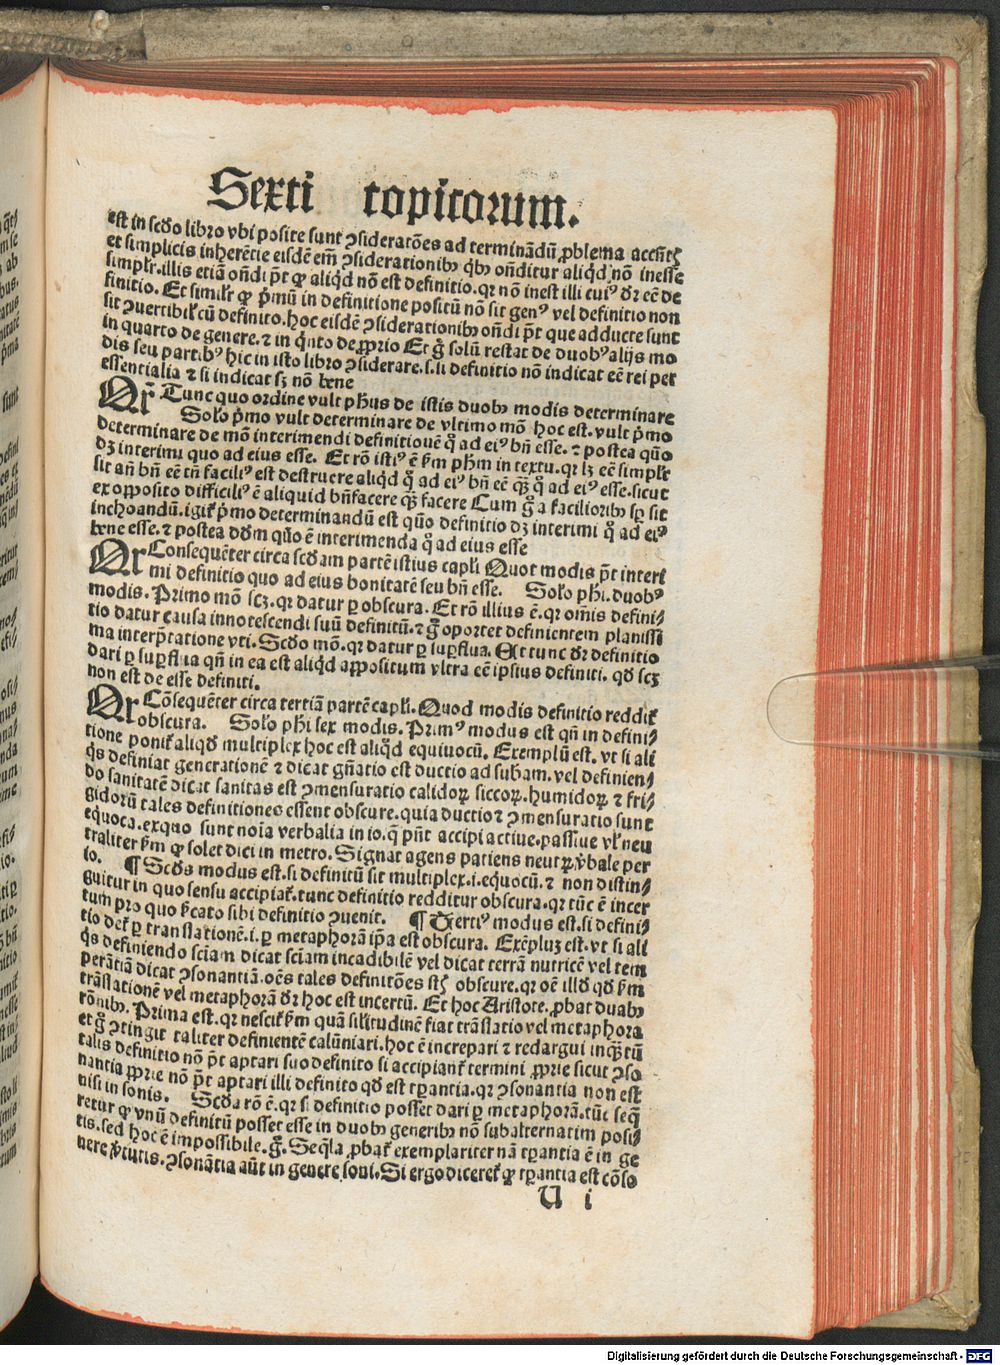 Sexti topicorum.
est in scdo libro vbi posite sunt ↄsideratōes ad terminādū ꝓblema accn̄tꝭ
et simplicis inherētie eisdē em̄ ↄsiderationibꝰ qbꝰ on̄ditur aliqd nō inesse
simplr̄.illis etiā on̄di pt̄ ꝙ aliqd nō est definitio.qr nō inest illi cuiꝰ dr̄ eē de
finitio. Et similr̄ ꝙ pmū in definitione positū nō sit genꝰ vel definitio non
sit ↄuertibil̄'cū definito.hoc eisdē ↄsiderationibꝰ on̄di pt̄ que adducte sunt
in quarto de genere.⁊ in qnto de ꝓprio Et g̊ solū restat de duobꝰ alijs mo
dis seu partibꝰ hic in isto libro ↄsiderare.s.si definitio nō indicat eē rei per
essentialia ⁊ si indicat sꝫ nō bene
Qr̄ Tunc quo ordine vult ph̄us de istis duobꝰ modis determinare
Solo pmo vult determinare de vltimo mō hoc est.vult pmo
determinare de mō interimendi definitionē q̊ ad eiꝰ bn̄ esse.⁊ postea quō
dꝫ interimi quo ad eius esse. Et rō istiꝰ ē ẜm ph̄m in textu.qr lꝫ eē simplr̄
sit an̄ bn̄ eē tn̄ faciliꝰ est destruere aliqd q̊ ad eiꝰ bn̄ eē qꝫ q̊ ad eiꝰ esse.sicut
ex opposito difficiliꝰ ē aliquid bn̄facere qꝫ facere Cum g̊ a facilioribꝰ sp̄ sit
inchoandū.igit̄ pmo determinandū est quō definitio dꝫ interimi q̊ ad eiꝰ
bene esse.⁊ postea dd̄m quō ē interimenda q̊ ad eius esse
Qr̄ Consequēter circa scdam partē istius capl̄i Quot modis pt̄ interi
mi definitio quo ad eius bonitatē seu bn̄ esse. Solo ph̄i.duobꝰ
modis. Primo mō scꝫ.qr datur ꝑ obscura. Et rō illius ē.qr om̄is defini⸗
tio datur causa innotescendi suū definitū.⁊ g̊ oportet definientem planissi
ma interp̄tatione vti. Scdo mō.qr datur ꝑ suꝑflua. Et tunc dr̄ definitio
dari ꝑ suꝑflua qn̄ in ea est aliqd appositum vltra eē ipsius definiti. qd scꝫ
non est de esse definiti.
Qr̄ Cōsequēter circa tertiā partē capl̄i. Quod modis definitio reddit̄
obscura. Solo ph̄i sex modis. Primꝰ modus est qn̄ in defini⸗
tione ponit̄ aliqd multiplex hoc est aliqd equiuocū. Exemplū est. vt si ali
qs definiat generationē ⁊ dicat gn̄atio est ductio ad subam. vel definien⸗
do sanitatē dicat sanitas est ↄmensuratio calidoꝝ siccoꝝ.humidoꝝ ⁊ fri⸗
gidorū tales definitiones essent obscure.quia ductio ⁊ ↄmensuratio sunt
equoca.exquo sunt noīa verbalia in io.q̄ pn̄t accipi actiue.passiue vl̄'neu
traliter ẜm ꝙ solet dici in metro. Signat agens patiens neutꝝ v̄bale per
io. ¶ Scds modus est.si definitū sit multiplex.i.equocū.⁊ non distin⸗
guitur in quo sensu accipiat̄.tunc definitio redditur obscura.qr tūc ē incer
tum pro quo ẜcato sibi definitio ↄuenit. ¶ Tertiꝰ modus est.si defini⸗
tio det̄ ꝑ translationē.i.ꝑ metaphorā ip̄a est obscura. Exēpluꝫ est.vt si ali
qs definiendo sciam dicat sciam incadibilē vel dicat terrā nutricē vel tem
perātiā dicat ↄsonantiā.oēs tales definitōes stꝭ obscure.qr oē illd qd ẜm
trāslationē vel metaphorā dr̄ hoc est incertū. Et hoc Aristote.ꝓbat duabꝰ
rōnibꝰ. Prima est.qr nescit̄ ẜm quā sil̄itudinē fiat trāslatio vel metaphora
et g̊ ↄtingit taliter definientē calūniari.hoc ē increpari ⁊ redargui inqꝫtū
talis definitio nō pt̄ aptari suo definito si accipiant̄ termini ꝓprie sicut ↄso
nantia ꝓprie nō pt̄ aptari illi definito qd est tꝑantia.qr ↄsonantia non est
nisi in sonis. Scda rō ē.qr si definitio posset dari ꝑ metaphorā.tūc seq̄
retur ꝙ vnū definitū posset esse in duobꝰ generibꝰ nō subalternatim posi⸗
tis.sed hoc ē impossibile.g̊. Seqla ꝓbat̄ exemplariter nā tꝑantia ē in ge
nere v̄tutis.ↄsonātia aūt in genere soni. Si ergo diceret̄ ꝙ tꝑantia est cōso
U i
Digitalisierung gefördert durch die Deutsche Forschungsgemeinschaft - DFG